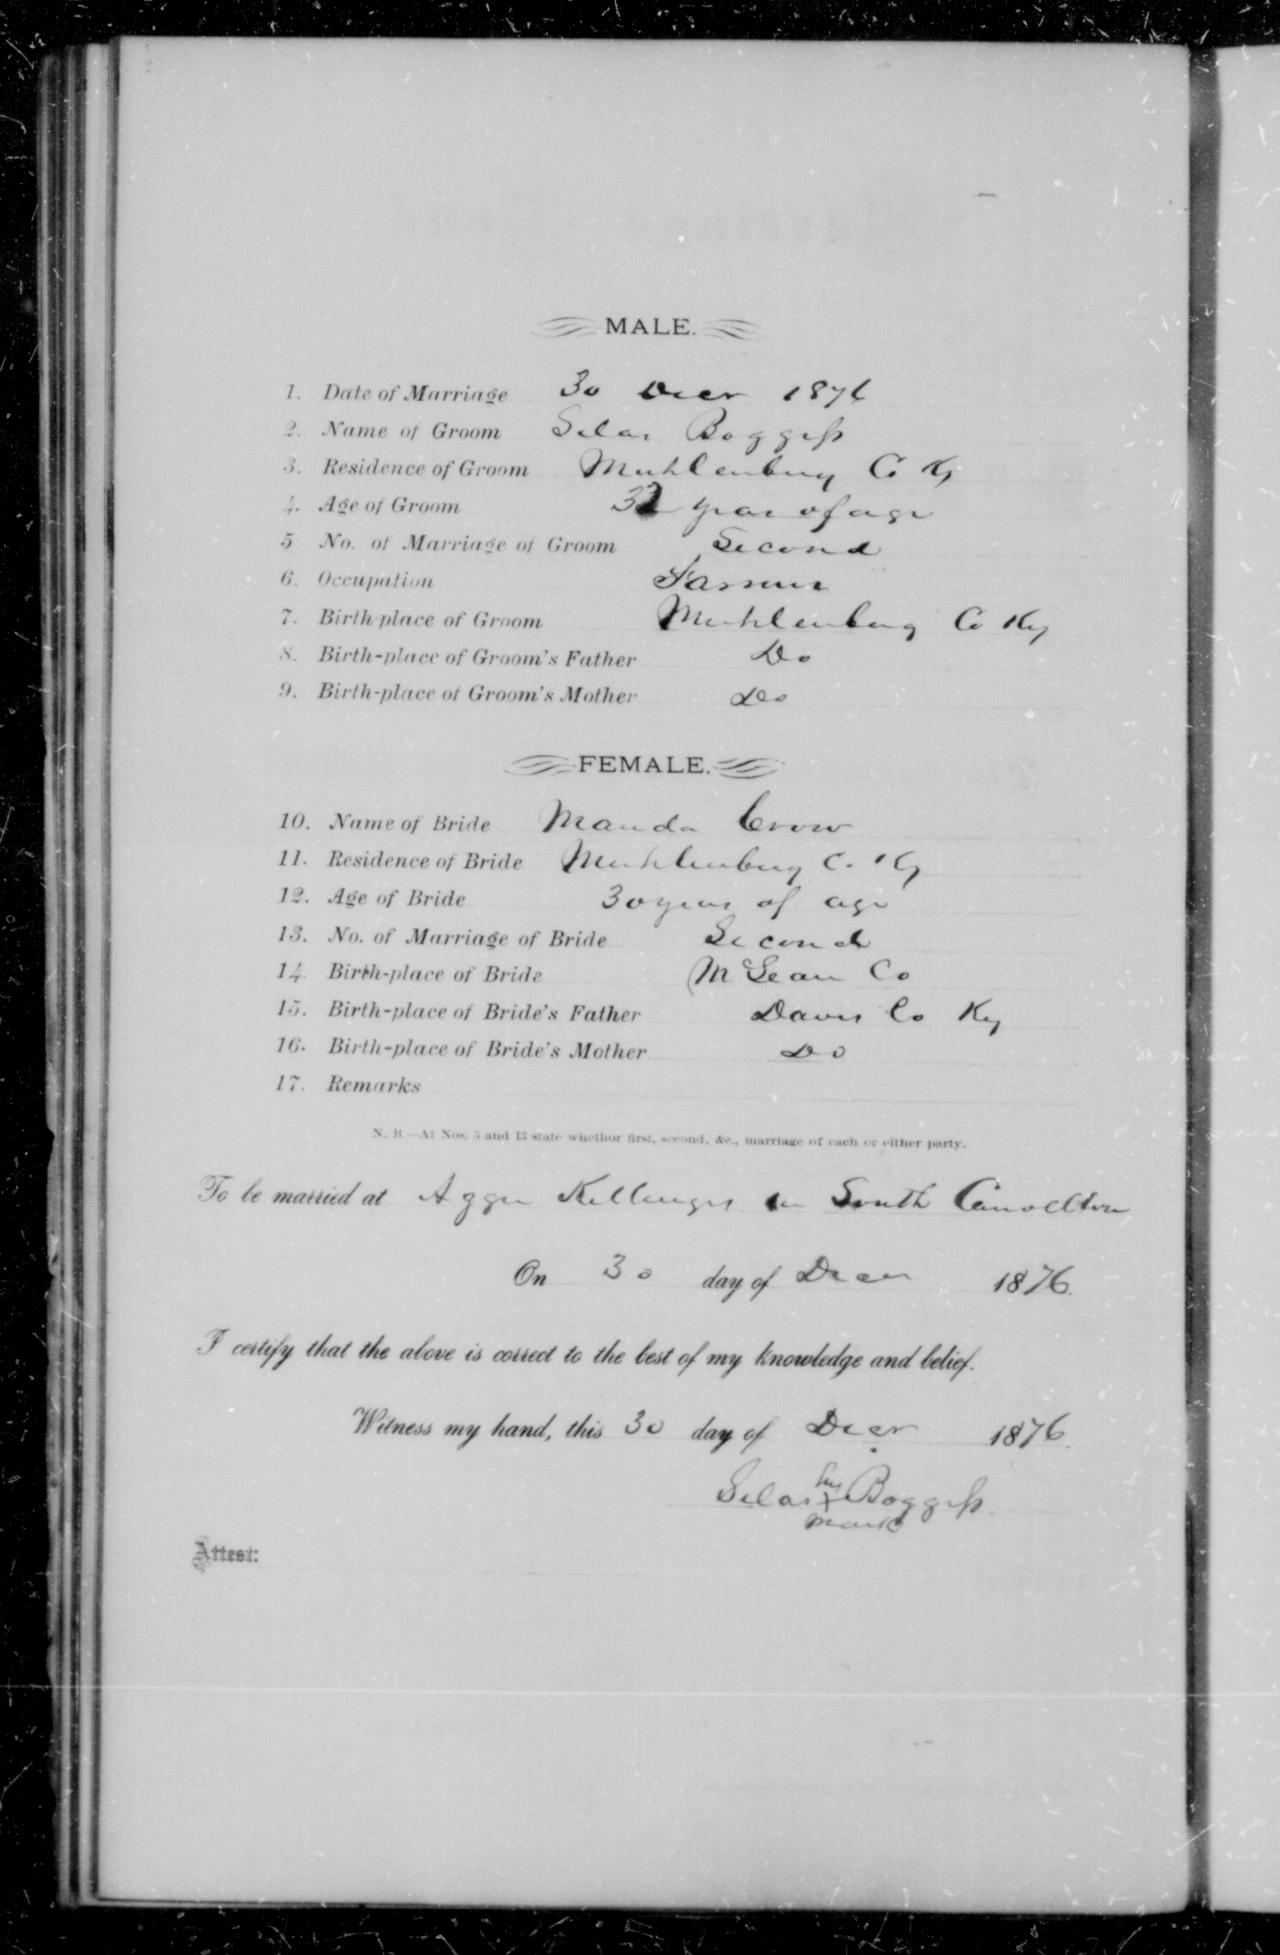 MALE.
1. Date of Marriage 30 Decr 1876
2. Name of Groom Silas Boggess
3. Residence of Groom Muhlenburg Co Ky
4. Age of Groom 32 years of age
5 No. of Marriage of Groom Second
6. Occupation Farmer
7. Birth-place of Groom Muhlenburg Co Ky
8. Birth-place of Groom's Father Do
9. Birth-place of Groom's Mother Do
FEMALE.
10. Name of Bride Manda Crow
11. Residence of Bride Muhlenburg C. Ky
12. Age of Bride 30 years of age
13. No. of Marriage of Bride Second
14 Birth-place of Bride McLean Co
15. Birth-place of Bride's Father Daviss Co Ky
16. Birth-place of Bride's Mother Do
17. Remarks
N. B.—At Nos. 5 and 13 state whethor first, second, &c., marriage of each or either party.
To be married at in South Carrollton
On 30 day of Decr 1876.
I certify that the above is correct to the best of my knowledge and belief.
Witness my hand, this 30 day of Decr 1876.
his
Silas X Boggess
mark
Attest: